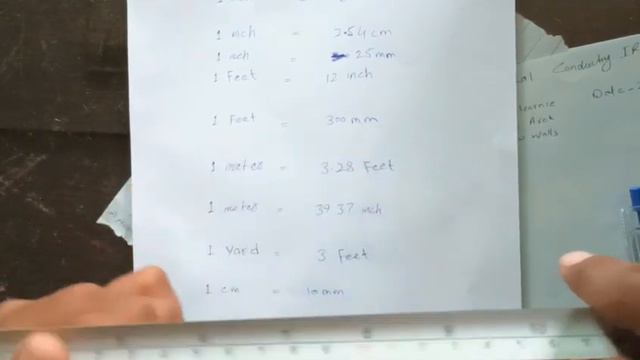 1 inch = 2.54 cm
1 inch = 25 mm
1 Feet = 12 inch
1 Foot = 300 mm
1 meter = 3.28 Feet
1 meter = 39 37 inch
1 Yard = 3 Feet
1 cm = 10 mm
Date-
Arch
Walls